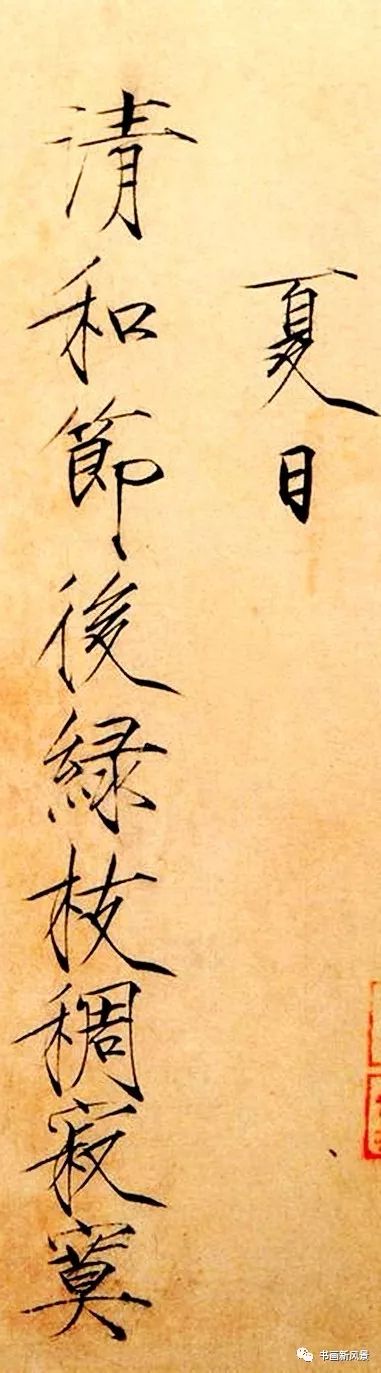 夏日
清和節後綠枝稠寂寞
书画新风景